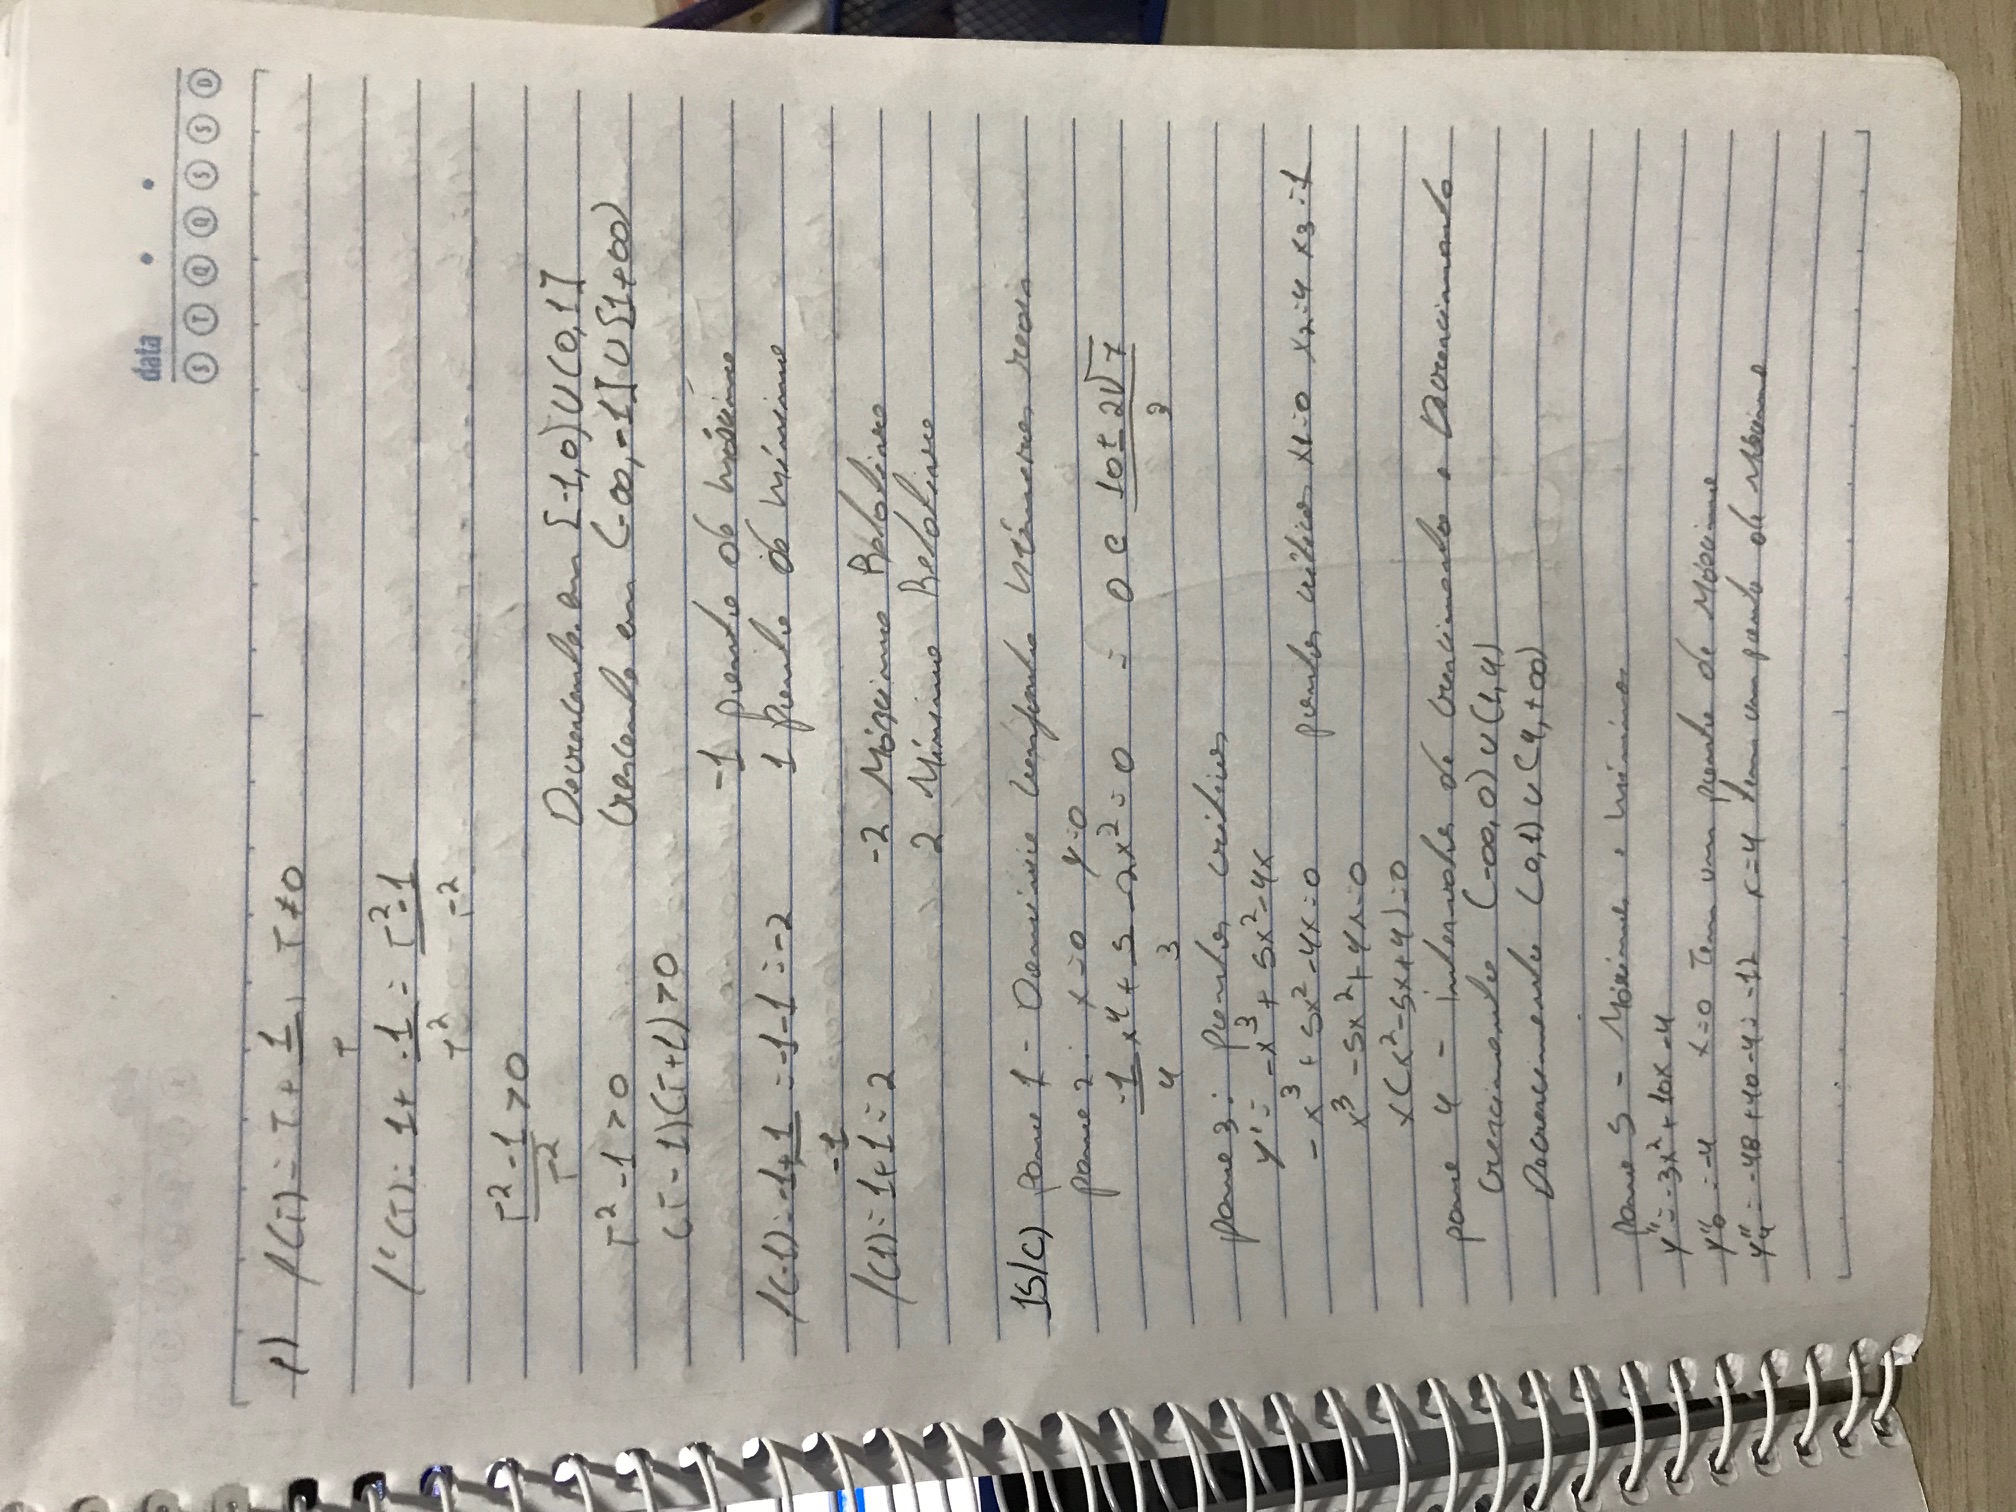 data
S T Q Q S S D
f) f(T) = T + 1/T, T ≠ 0
f'(T) = 1 + -1/T² = T²-1/T²
T²-1/T² > 0
Decrescente em [-1,0) U (0,1]
T² - 1 > 0 Crescente em (-∞, -1] U [1+∞)
(T-1)(T+1) > 0
-1 ponto de máximo
f(-1) = -1 + 1/-1 = -1-1 = -2 1 ponto de mínimo
f(1) = 1+1 = 2 -2 Máximo Relativo
2 Mínimo Relativo
15/c) passo 1 - Domínio Conjunto Números reais
passo 2: x=0 y=0
-1/4 x⁴ + 5/3 - 2x² = 0 = 0 e 10 ± 2√7/3
passo 3: pontos críticos
y' = -x³ + 5x² - 4x
-x³ + 5x² - 4x = 0 pontos críticos x1=0 x2=4 x3=1
x³ - 5x² + 4x = 0
x(x² - 5x + 4) = 0
passo 4 - intervalos de Crescimento e Decrescimento
Crescimento (-∞, 0) U (1,4)
Decrescimento (0,1) U (4,+∞)
passo 5 - Máximos e Mínimos
y'' = -3x² + 10x - 4
y''0 = -4 x=0 Tem um ponto de Máximo
y''4 = -48 + 40 - 4 = -12 x=4 tem um ponto de Máximo